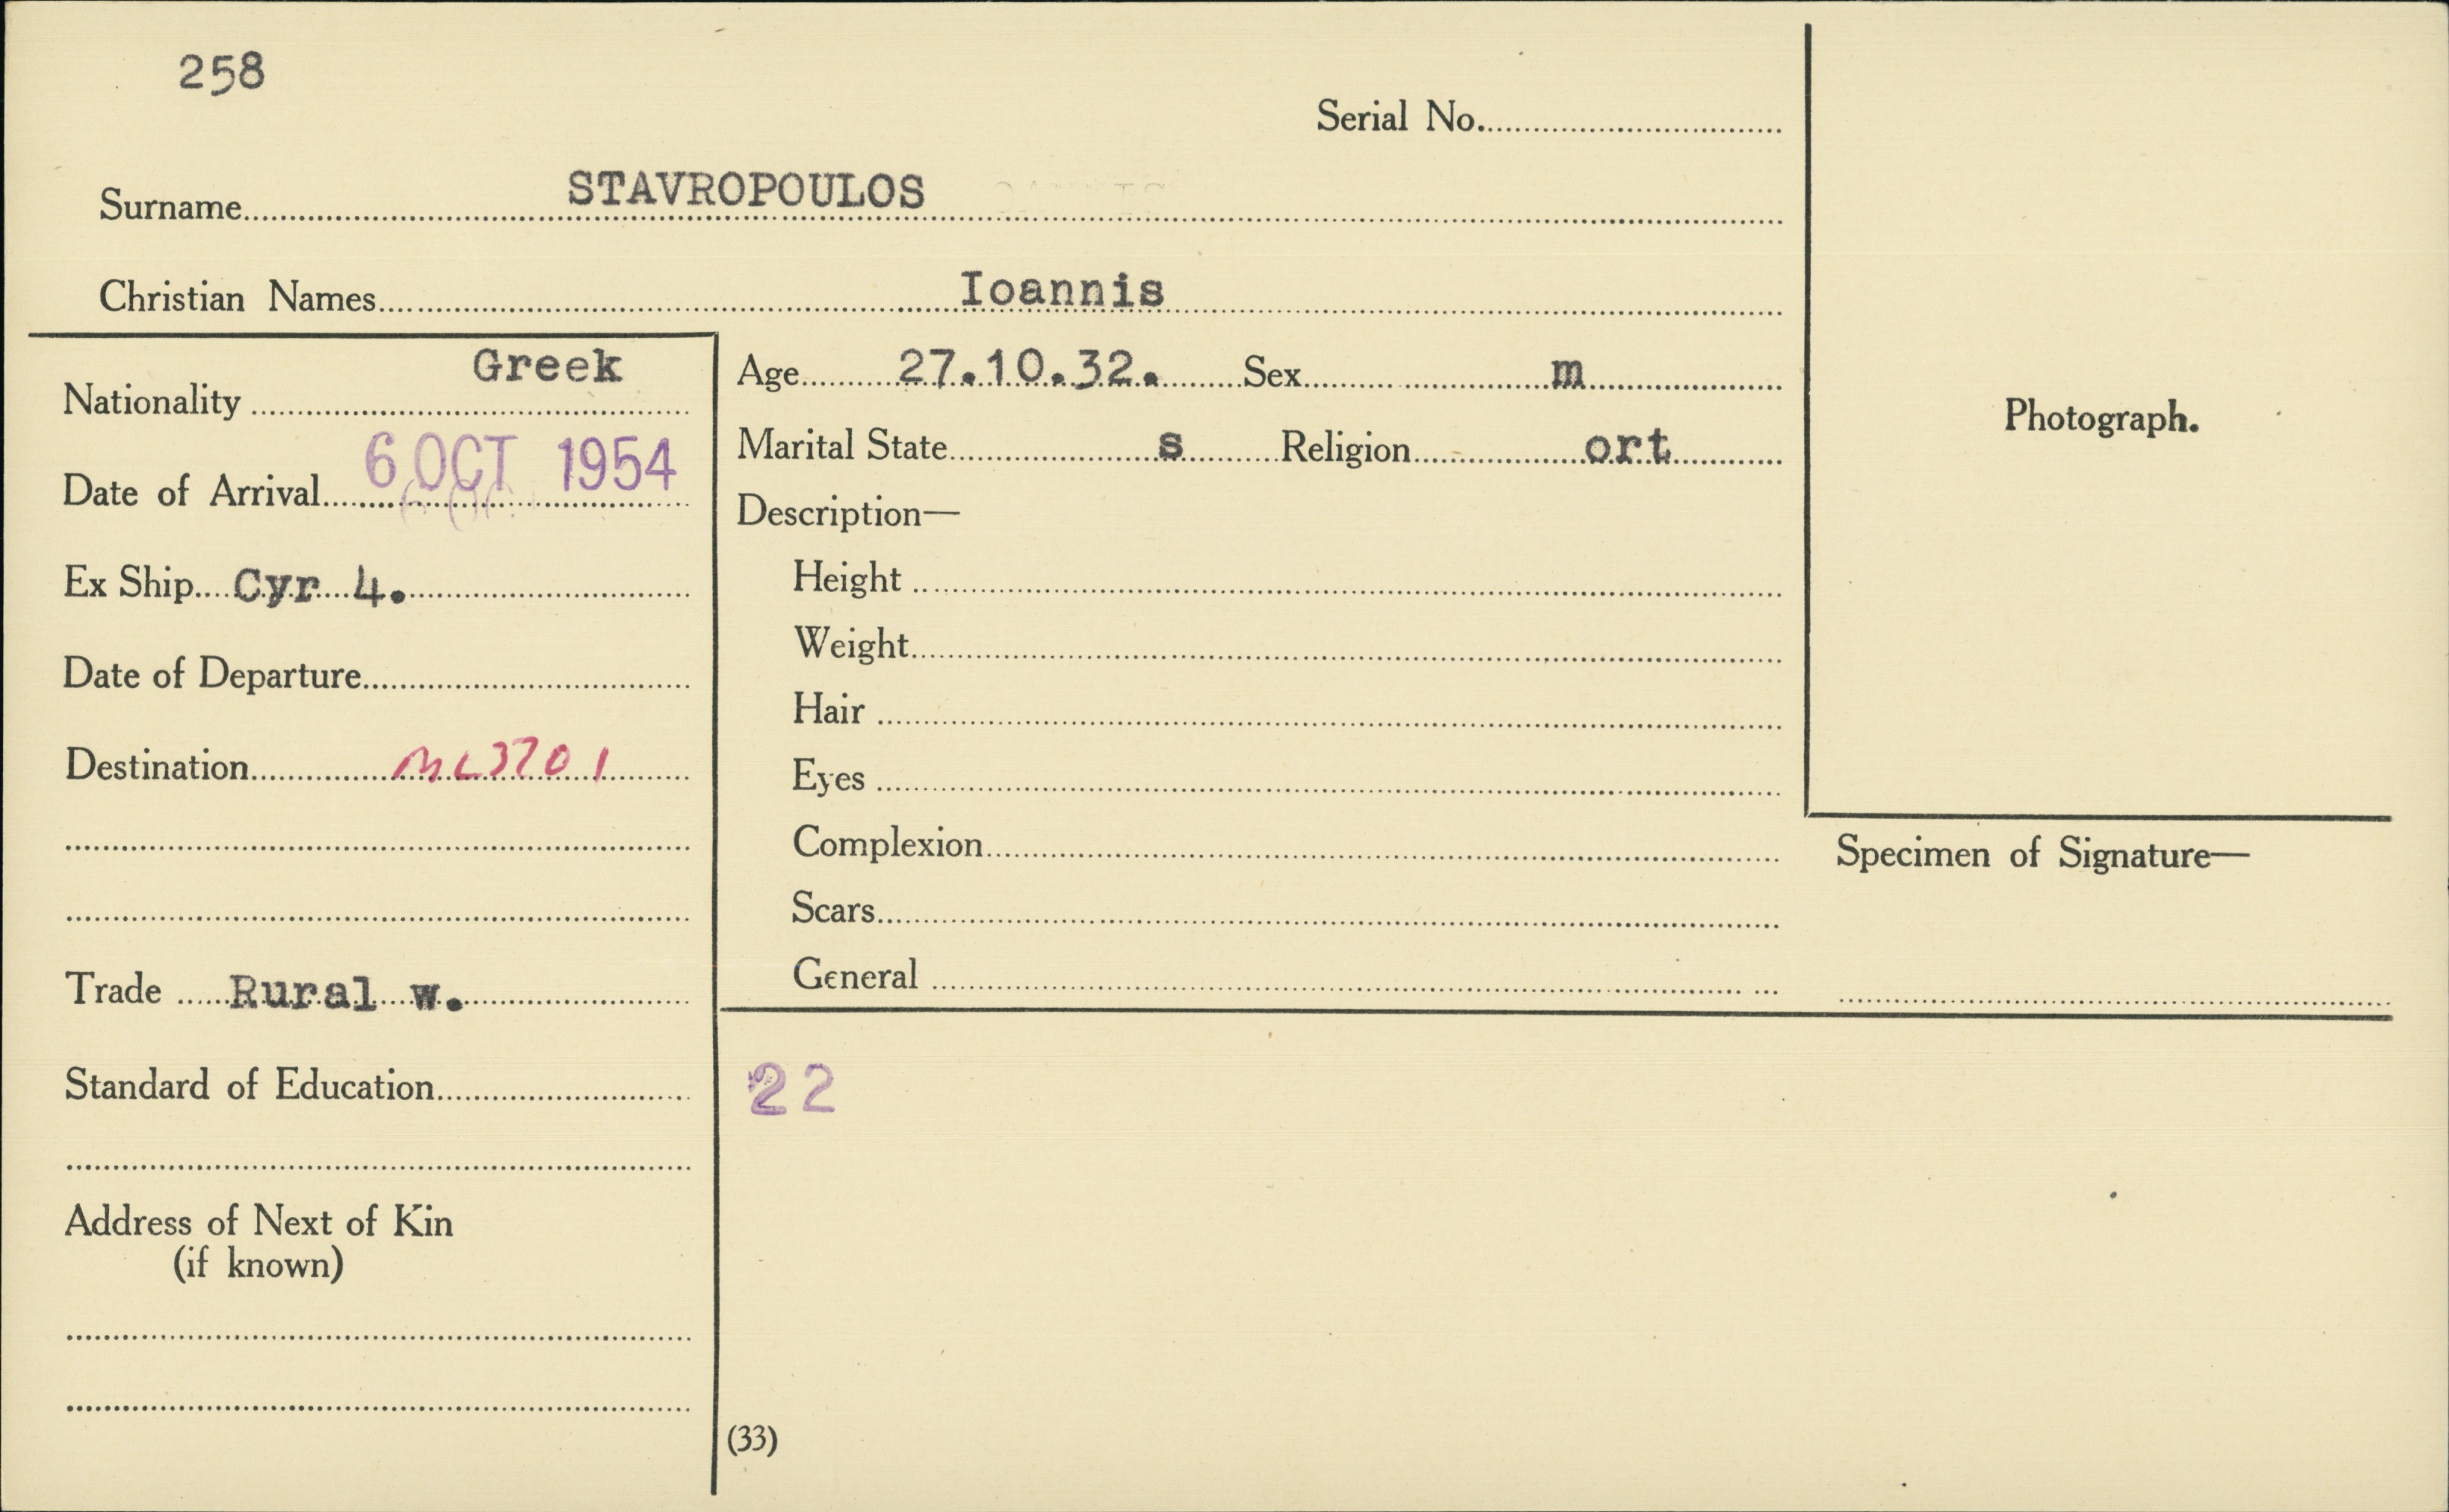 258
Serial No.
Surname STAVROPOULOS
Christian Names Ioannis
Nationality Greek
Date of Arrival 6 OCT 1954
Ex Ship Cyr 4.
Date of Departure
Destination ML3701
Trade Rural w.
Standard of Education
Address of Next of Kin
(if known)
Age 27.10.32. Sex m
Marital State s Religion ort
Description—
Height
Weight
Hair
Eyes
Complexion
Scars
General
22
(33)
Photograph.
Specimen of Signature—